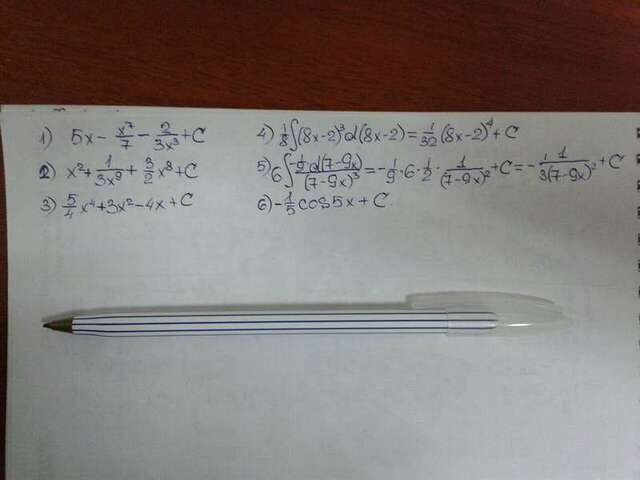 1) 5x - x⁷/7 - 2/(3x³) + C
2) x² + 1/(3x⁹) + 3/2 x³ + C
3) 5/4 x⁴ + 3x² - 4x + C
4) 1/8 ∫(8x-2)³ d(8x-2) = 1/32 (8x-2)⁴ + C
5) 6 ∫ (1/9 d(7-9x))/(7-9x)³ = -1/9 · 6 · 1/2 · 1/(7-9x)² + C = - 1/(3(7-9x)²) + C
6) - 1/5 cos 5x + C